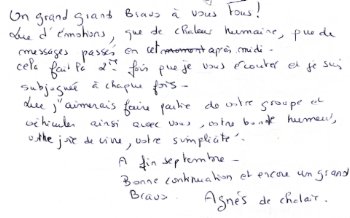 Un grand grand Bravo à vous tous !
Que d'émotions, que de chaleur humaine, que de
messages passés en cet moment après midi.
cela fait la 2ème fois que je vous écoute et je suis
subjuguée à chaque fois.
Que j'aimerais faire partie de votre groupe et
véhiculer ainsi avec vous, votre bonne humeur,
votre joie de vivre, votre simplicité.
A fin septembre.
Bonne continuation et encore un grand
Bravo. Agnés de chalair.